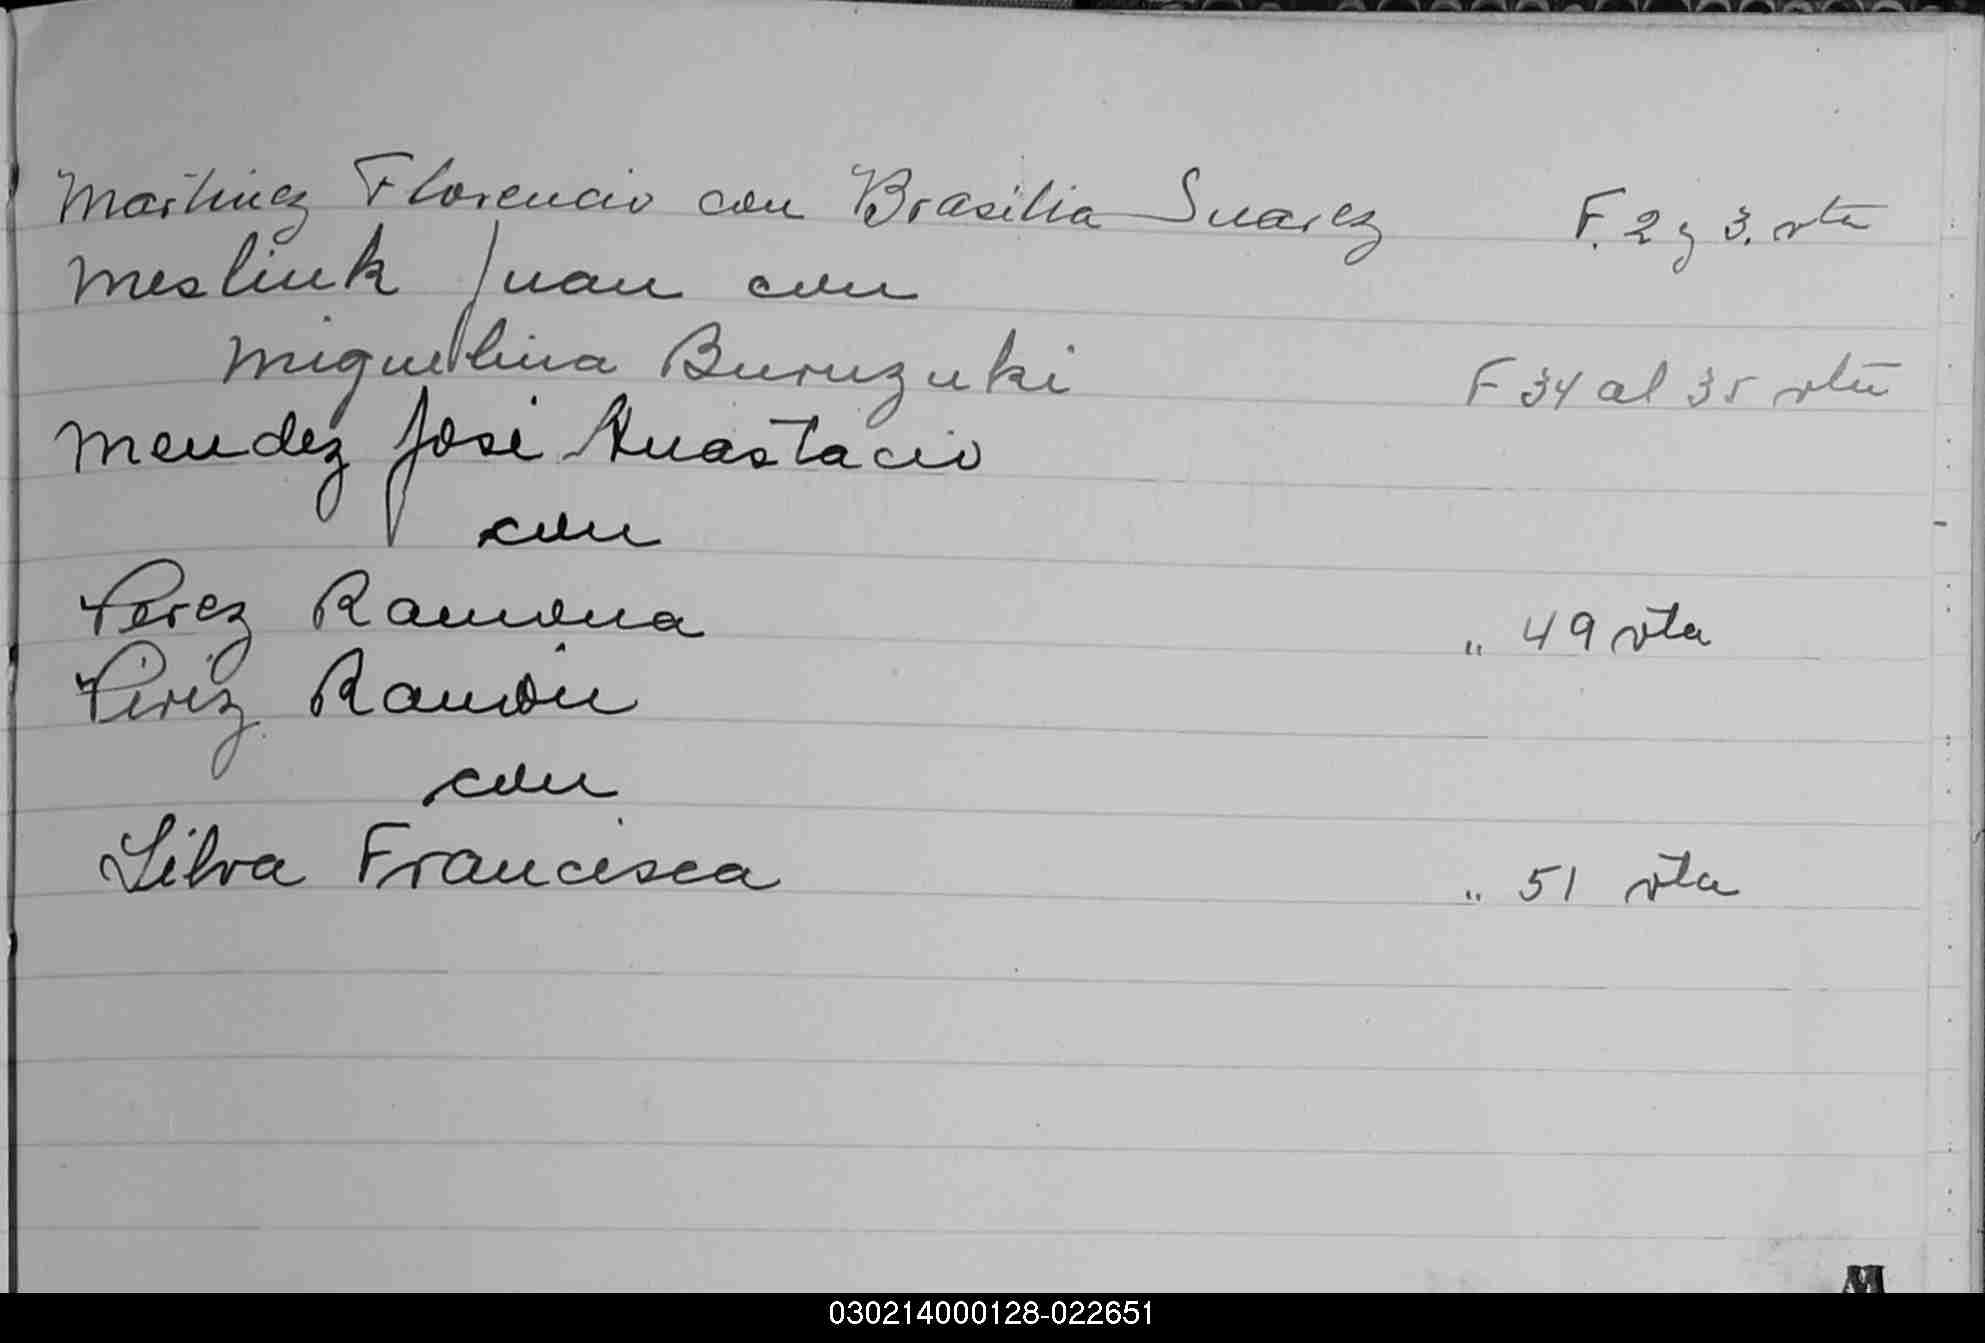 Martinez Florencio con Brasilia Suarez F. 2 y 3. vta
Mesliuk Juan con
Miguelina Buruzuki F 34 al 35 vta
Mendez José Anastacio
con
Perez Ramona " 49 vta
Pérez Ramón
con
Silva Francisca " 51 vta
M
030214000128-022651